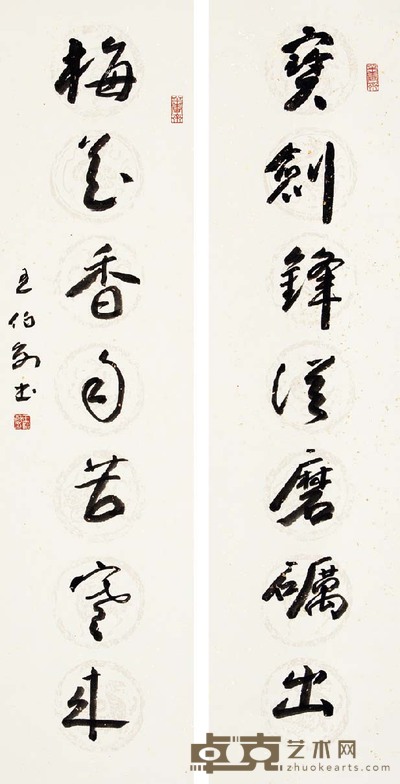 寶劍鋒從磨礪出
梅花香自苦寒來
王伯敏書
卓克艺术网
www.zhuokearts.com